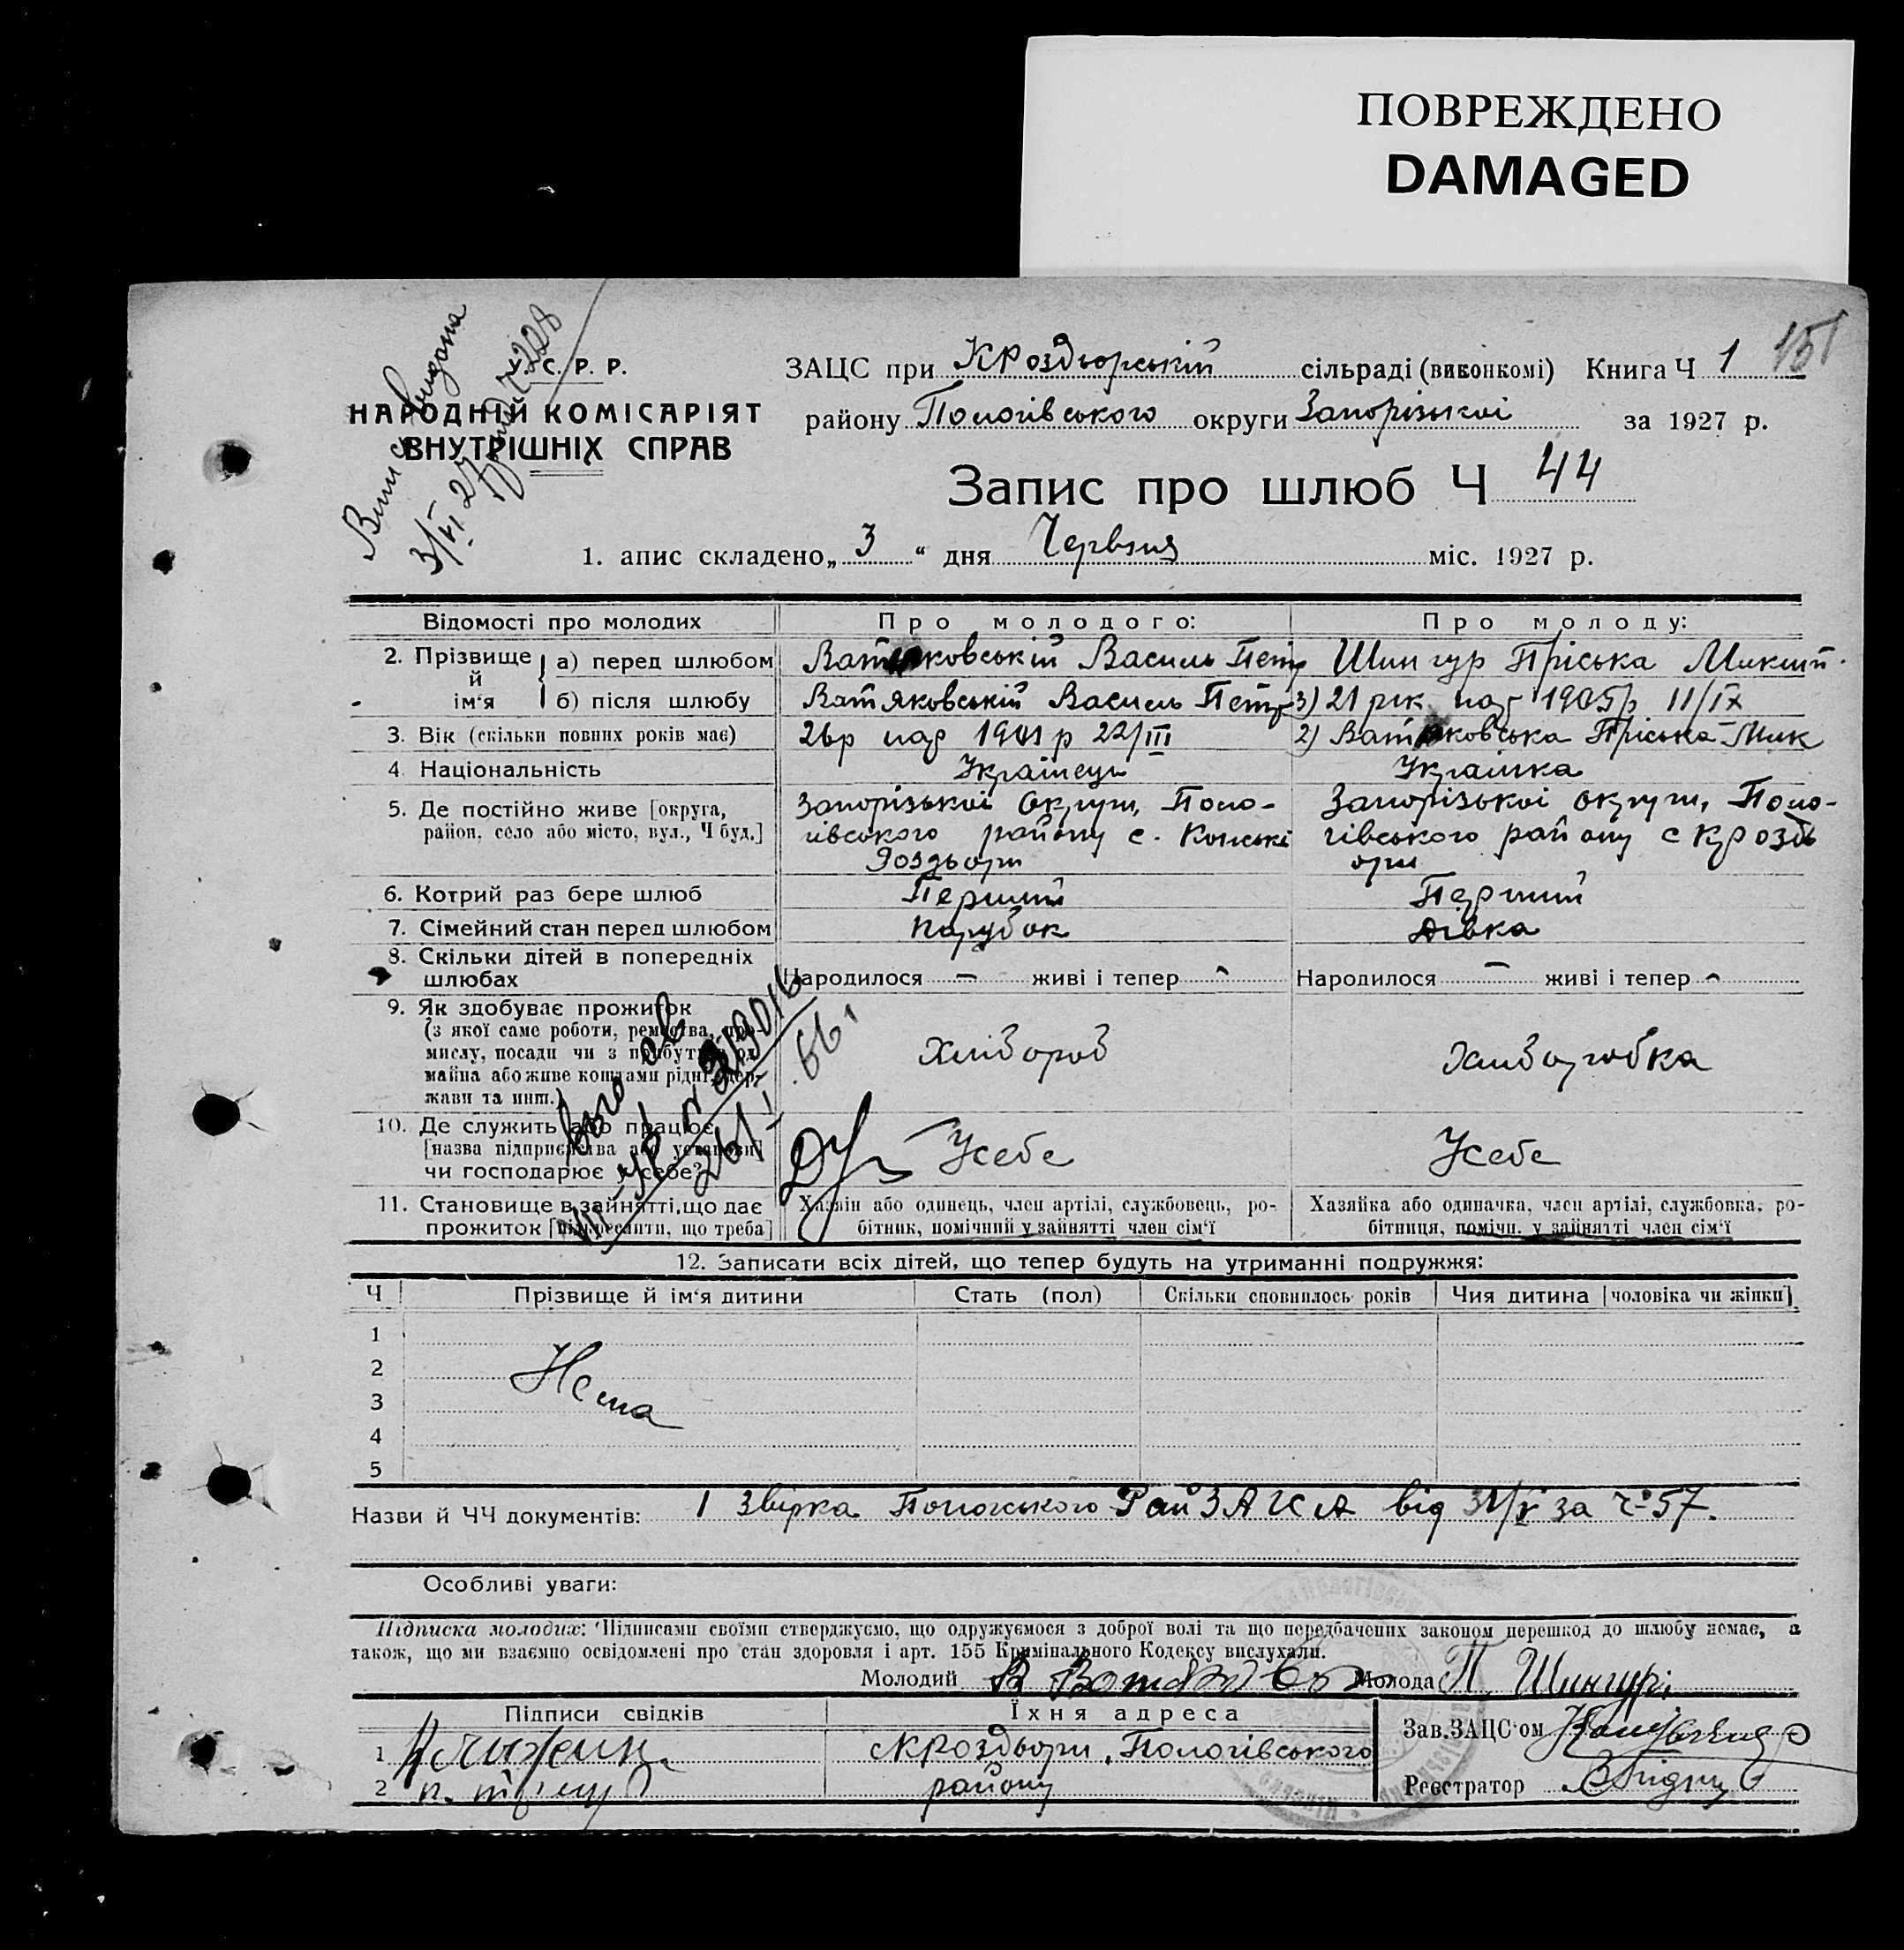 ПОВРЕЖДЕНО
DAMAGED
У. С. Р. Р.
НАРОДНІЙ КОМІСАРІЯТ
ВНУТРІШНІХ СПРАВ
ЗАЦС при КРоздорській сільраді (виконкомі) Книга Ч 1 151
району Пологівського округи Запорізької за 1927 р.
Запис про шлюб Ч 44
1. апис складено „ 3 “ дня Червня міс. 1927 р.
Відомості про молодих Про молодого: Про молоду:
2. Прізвище й ім‘я а) перед шлюбом Ватяковській Василь Петр Шингур Пріська Микит.
б) після шлюбу Ватяковській Василь Петр 3) 21 рік нар 1905 р 11/IX
3. Вік (скільки повних років має) 26р нар 1901 р 22/III 2) Ватяковська Пріська Мик
4. Національність Українець Українка
5. Де постійно живе [округа, район, село або місто, вул., Ч буд.]
Запорізької Округи, Поло-
гівського району с. Конські
Роздьори
Запорізької округи, Поло-
гівського району с Кроздь
ори
6. Котрий раз бере шлюб Перший Перший
7. Сімейний стан перед шлюбом парубок дівка
8. Скільки дітей в попередніх шлюбах Народилося — живі і тепер - Народилося — живі і тепер -
9. Як здобуває прожиток
(з якої саме роботи, ремества, про-
мислу, посади чи з прибутків од
майна або живе коштами рідні, дер-
жави та инш.)
хлібороб хліборобка
10. Де служить або працює
[назва підприємства або установи]
чи господарює у себе?
Усебе Усебе
11. Становище в зайнятті, що дає
прожиток [підкреслити, що треба]
Хазяїн або одинець, член артілі, службовець, ро-
бітник, помічний у зайнятті член сім‘ї
Хазяйка або одиначка, член артілі, службовка, ро-
бітниця, помічн. у зайнятті член сім‘ї
12. Записати всіх дітей, що тепер будуть на утриманні подружжя:
Ч Прізвище й ім‘я дитини Стать (пол) Скільки сповнилось років Чия дитина [чоловіка чи жінки]
1
2 Нема
3
4
5
Назви й ЧЧ документів: 1 Звірка Пологського РайЗАГСА від 31/V за ч° 57.
Особливі уваги:
Підписка молодих: Підписами своїми стверджуємо, що одружуємося з доброї волі та що передбачених законом перешкод до шлюбу немає, а
також, що ми взаємно освідомлені про стан здоровля і арт. 155 Кримінального Кодексу вислухали.
Молодий Молода П. Шингурі
Підписи свідків Їхня адреса Зав. ЗАЦС‘ом
1 с Кроздьори, Пологівського
2 району Реєстратор